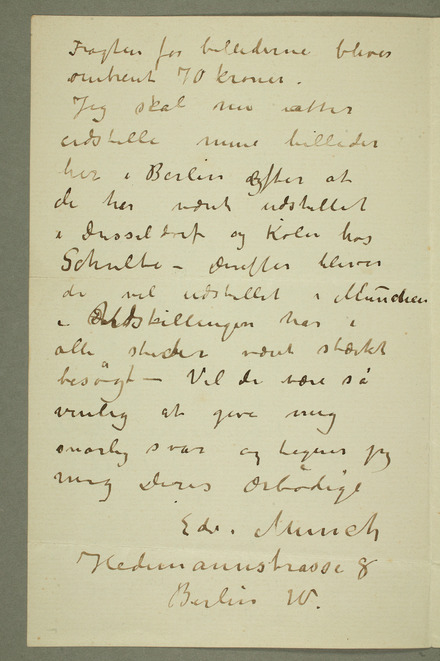 Fragten for billederne bliver
omtrent 70 kroner.
Jeg skal nu atter
udstille mine billeder
her i Berlin efter at
de har været udstillet
i Düsseldorf og Köln hos
Schulte – derefter bliver
de vel udstillet i München
– Udstillingen har i
alle steder været stærkt
besögt – Vil de være så
venlig at give mig
snarlig svar og tegner jeg
mig Deres ærbödige
Edv. Munch
Hedemannstrasse 8
Berlin W.